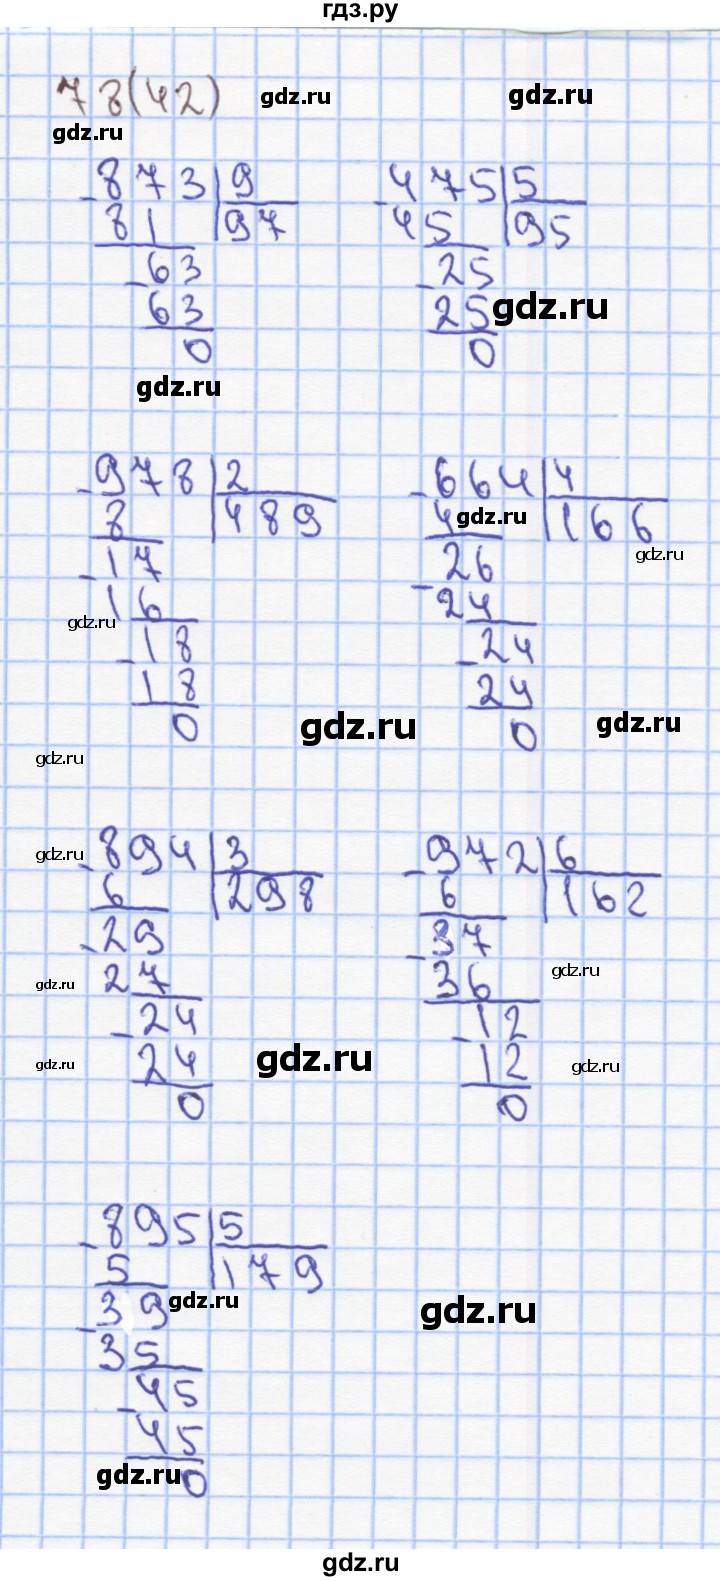 гдз.ру
78(42) gdz.ru gdz.ru
gdz.ru
-873|9 -475|5
81 |97 45 |95
-63 -25
63 25 gdz.ru
0 0
gdz.ru
-978|2 -664|4
8 |489 4 gdz.ru |166
-17 26 gdz.ru
16 -24
gdz.ru
-18 -24
18 24
0 gdz.ru 0 gdz.ru
gdz.ru
gdz.ru -894|3 -972|6
6 |298 6 |162
-29 -37
27 36 gdz.ru
gdz.ru
-24 -12
gdz.ru 24 gdz.ru 12 gdz.ru
0 0
-895|5
5 |179
-39 gdz.ru gdz.ru
35
-45
45
gdz.ru 0
gdz.ru